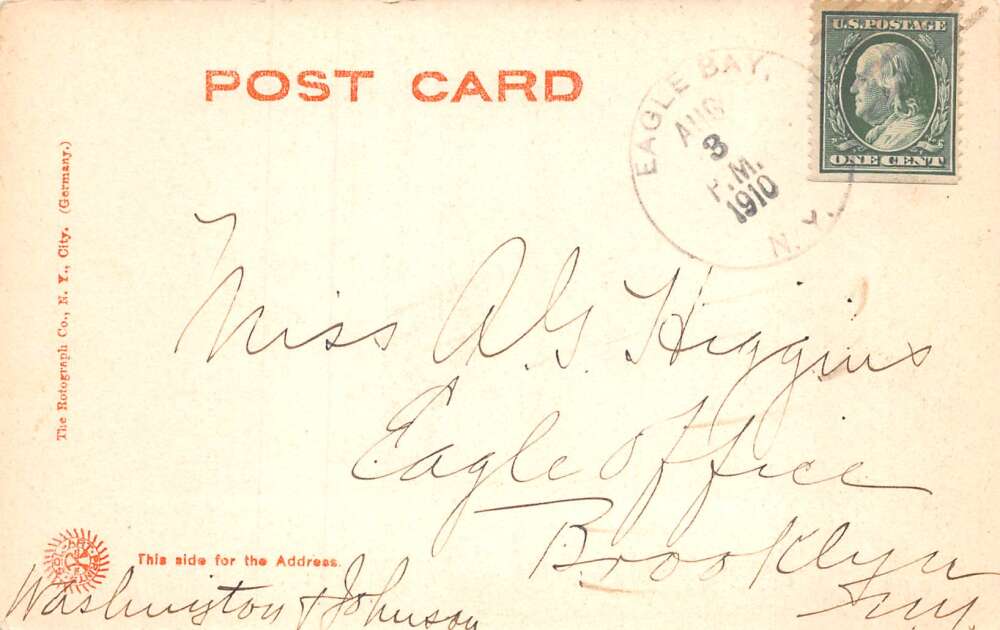 POST CARD
EAGLE BAY,
AUG
3
P.M.
1910
N. Y.
U.S. POSTAGE
ONE CENT
The Rotograph Co., N. Y., City. (Germany.)
Miss A G Higgins
Eagle Office
Brooklyn
N.Y.
This side for the Address.
Washington & Johnson